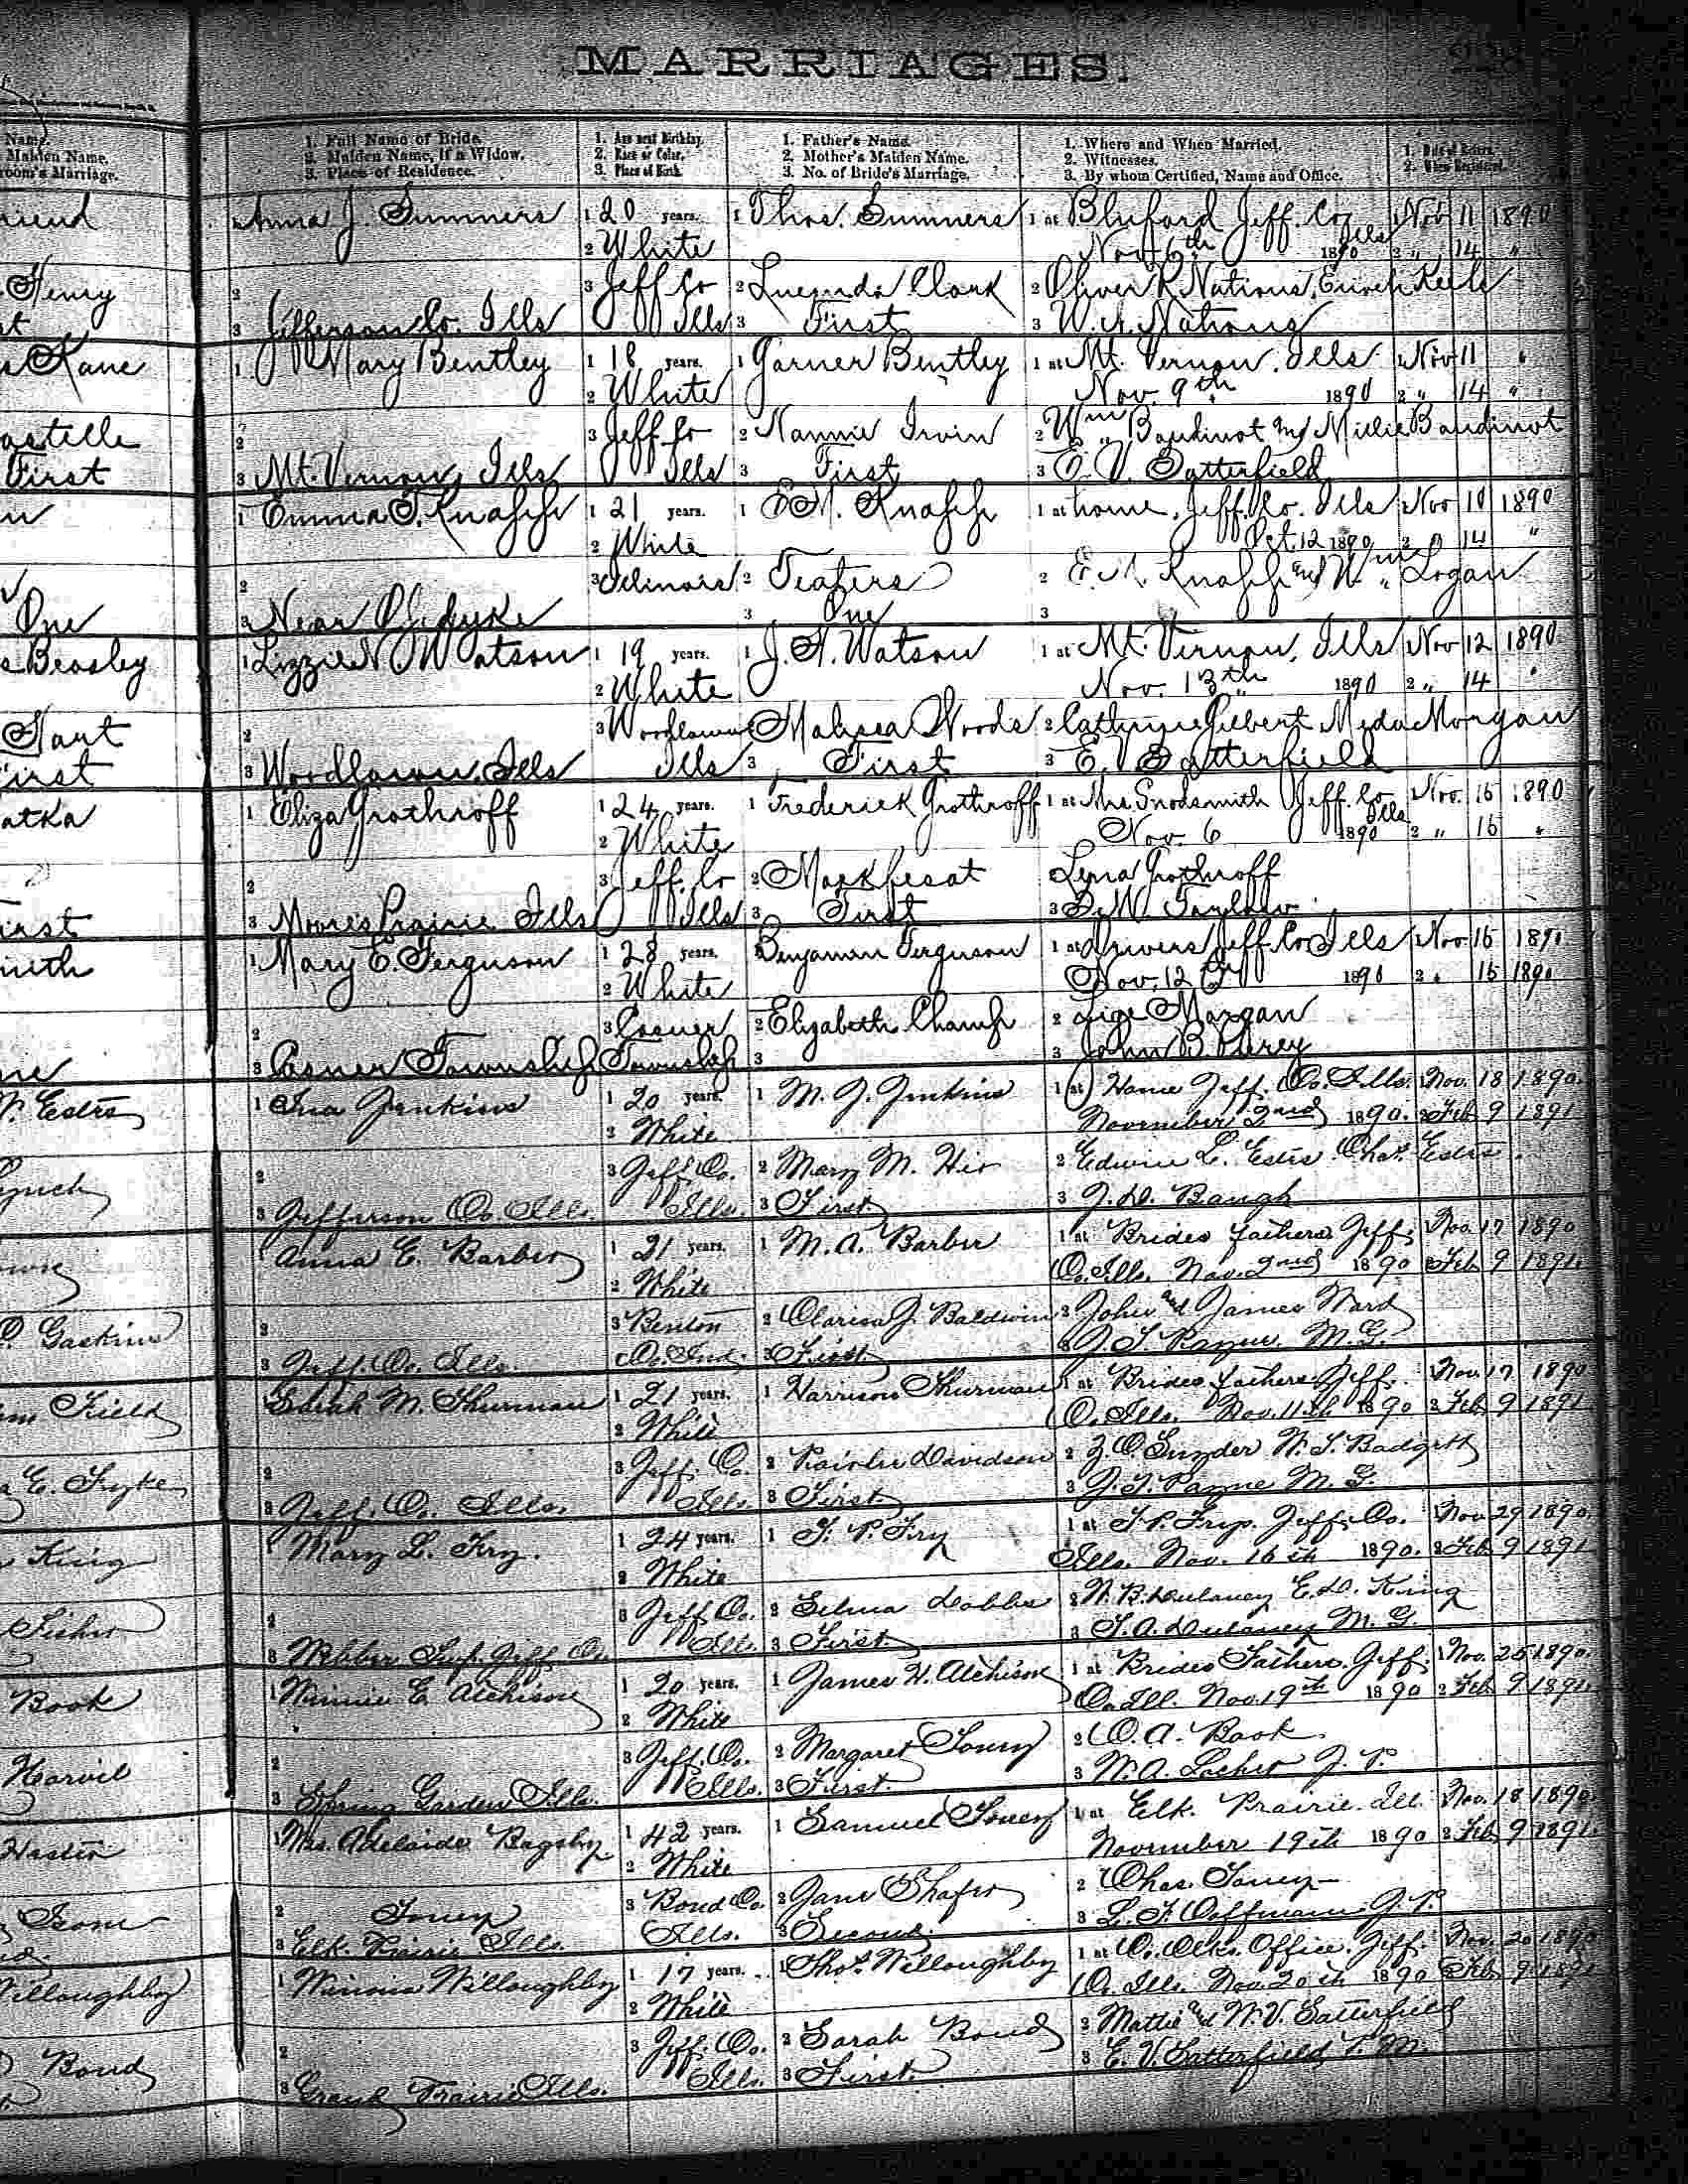 MARRIAGES.
Name.
Maiden Name.
room's Marriage.
1. Full Name of Bride.
2. Maiden Name, if a Widow.
3. Place of Residence.
1. Age next Birthday.
2. Race or Color.
3. Place of Birth.
1. Father's Name.
2. Mother's Maiden Name.
3. No. of Bride's Marriage.
1. Where and When Married.
2. Witnesses.
3. By whom Certified, Name and Office.
1. Date of Return.
2. When Registered.
riend Anna J. Summers 1 20 years. 1 Thos. Summers 1 at Bluford Jeff. Co Ills 1 Nov 11 1890
2 White Nov 6th 1890 2 " 14 "
Henry 2 3 Jeff Co 2 Lucinda Clark 2 Oliver R Nations, Enoch Keele
st 3 Jefferson Co. Ills Ills 3 First 3 W. A. Nations
Kane 1 Mary Bentley 1 18 years. 1 Garner Bentley 1 at Mt. Vernon, Ills 1 Nov 11 "
2 White Nov. 9th 1890 2 " 14 "
astelle 2 3 Jeff Co 2 Nannie Irvin 2 Wm Baudinot and Millie Baudinot
First 3 Mt. Vernon, Ills Ills 3 First 3 E. V. Satterfield
1 Emma Knapp 1 21 years. 1 E M. Knapp 1 at home, Jeff. Co. Ills Nov 10 1890
2 White Oct 12 1890 2 " 14 "
2 3 Illinois 2 Teaters 2 E. M. Knapp and Wm Logan
One 3 Near Opdyke 3 One 3
s Beasley 1 Lizzie N Watson 1 19 years. 1 J. A. Watson 1 at Mt. Vernon, Ills Nov 12 1890
2 White Nov. 13th 1890 2 " 14 "
Hart 2 3 Woodlawn Woods 2 Gilbert Meda Morgan
First 3 Woodlawn, Ills Ills 3 First 3 E. V Satterfield
atka 1 Eliza Grothroff 1 24 years. 1 Frederick Grothroff 1 at Jeff. Co Ills Nov. 15 1890
2 White Nov. 6 1890 2 " 15 "
2 3 Jeff. Co 2 Lena Grothroff
irst 3 Moores Prairie Ills Ills 3 First 3
mith 1 Mary E. Ferguson 1 28 years. Benjamin Ferguson 1 at Jeff Co Ills Nov 15 1890
2 White Nov. 12 1890 2 " 15 1890
2 3 Casner 2 Elizabeth Champ 2 Morgan
3 Casner Township Township 3 3 John B.
Estes 1 Ina Jenkins 1 20 years. 1 M. J. Jenkins 1 at Home Jeff. Co. Ills. 1 Nov. 18 1890.
2 White November 2nd 1890. 2 Feb 9 1891
Lynch 2 3 Jeff. Co. 2 Mary M. 2 Edwin L. Estes Chas. Estes
3 Jefferson Co. Ills. Ills. 3 First 3 J. D. Baugh
Anna E. Barber 1 21 years. 1 M. A. Barber 1 at Brides fathers Jeff. Nov. 17 1890
2 White Co. Ills. Nov. 2nd 1890 2 Feb 9 1891.
Gaskins 2 3 Benton 2 Clarisa J. Baldwin 2 John and James Ward
3 Jeff. Co. Ills. Co. Ind. 3 First 3 J. T. Payne. M.G.
Field 1 Sarah M. Thurman 1 21 years. 1 Harrison Thurman 1 at Brides fathers Jeff. 1 Nov. 17 1890
2 White Co. Ills. Nov. 11th 1890 2 Feb. 9 1891
a E. Fyke 2 3 Jeff. Co. 2 Davidson 2 Z. O. Snyder W. T. Badgett
3 Jeff. Co. Ills. Ills. 3 First 3 J. T. Payne M. G.
King 1 Mary L. Fry. 1 24 years. 1 T. P. Fry 1 at T. P. Frys. Jeff. Co. Nov. 29 1890.
2 White Ills. Nov. 16th 1890. 2 Feb. 9 1891
Fisher 2 3 Jeff Co. 2 Selma Dobbs 2 W. B. Dulaney E. D. King
3 Webber Twp. Jeff. Co. Ills. 3 First 3 T. A. Dulaney M. G.
Book 1 Minnie E. Atchison 1 20 years. 1 James H. Atchison 1 at Brides Fathers. Jeff. 1 Nov. 25 1890.
2 White Co. Ill. Nov. 19th 1890 2 Feb. 9 1891.
Harvil 2 3 Jeff. Co. 2 Margaret Toney 2 O. A. Book
3 Spring Garden Ills. Ills. 3 First. 3 W. A. J. P.
Hasten 1 Mrs. Adelaide Bagsby 1 42 years. 1 Samuel Toney 1 at Elk. Prairie. Ill. Nov. 18 1890.
2 White November 19th 1890 2 Feb. 9 1891.
Isom 2 Toney 3 Bond Co. 2 Jane Shafer 2 Chas. Toney
3 Elk. Prairie Ills. Ills. 3 Second. 3 L. F. Coffman J. P.
Willoughby 1 Willoughby 1 17 years. 1 Thos. Willoughby 1 at Co. Clks. Office. Jeff. Nov. 20 1890
2 White Co. Ills. Nov. 20th 1890 2 Feb. 9 1891
Bond 2 3 Jeff. Co. 2 Sarah Bond 2 Mattie and W. V. Satterfield
3 Grand Prairie Ills. Ills. 3 First. 3 E. V. Satterfield P. M.